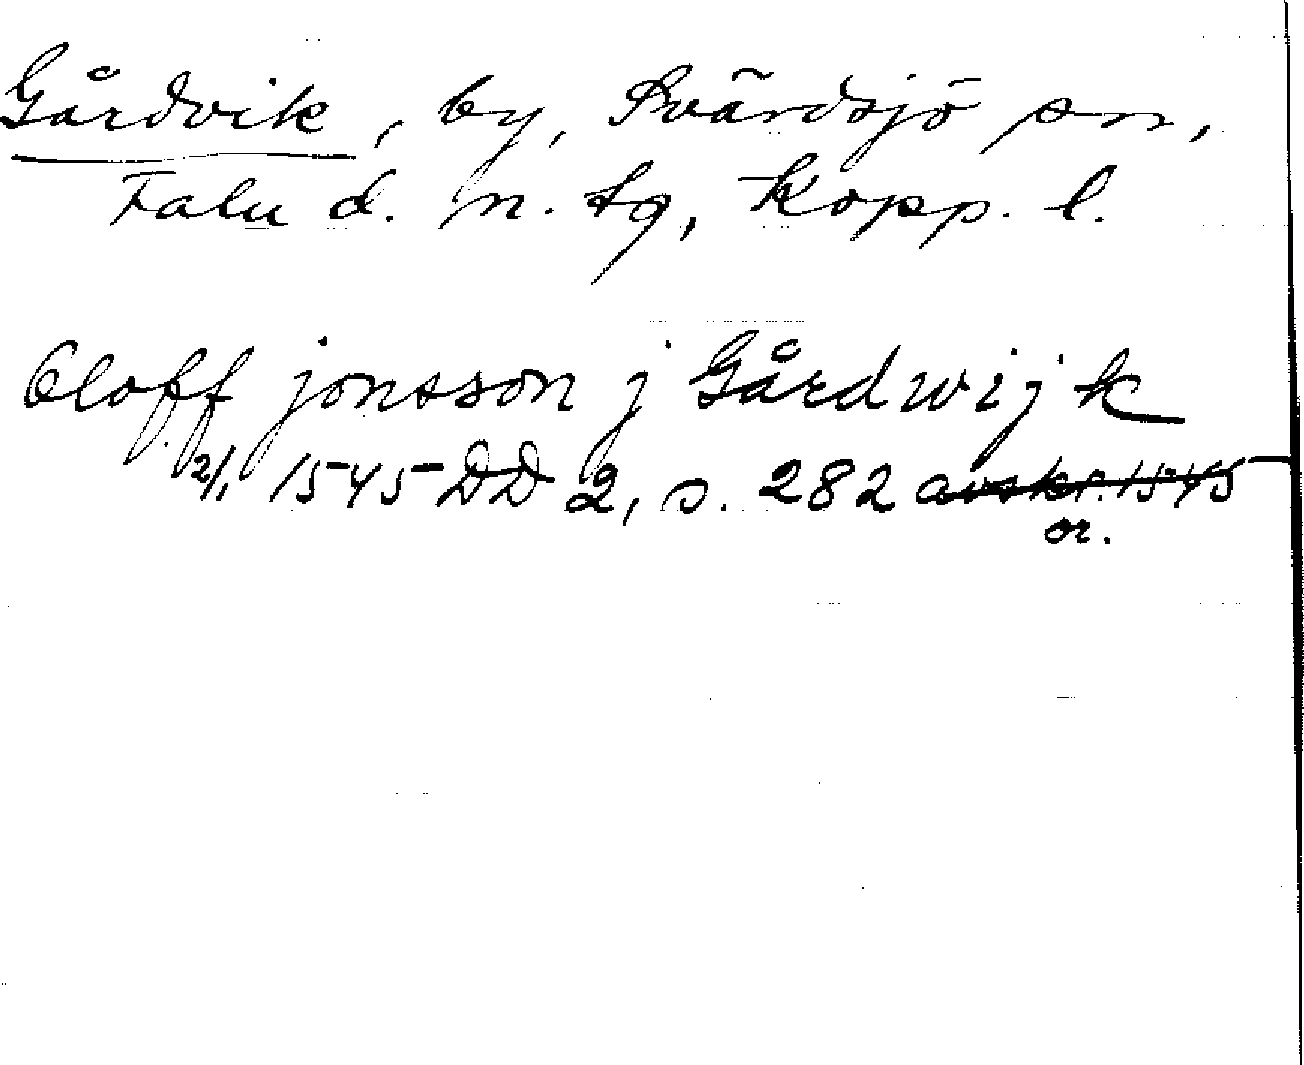 Gårdvik, by, Svärdsjö sn,
Falu d. n. tg, Kopp. l.
Oloff jonsson j Gårdwijk
2/1 1545 DD 2, s. 282 avskr. 1545
or.